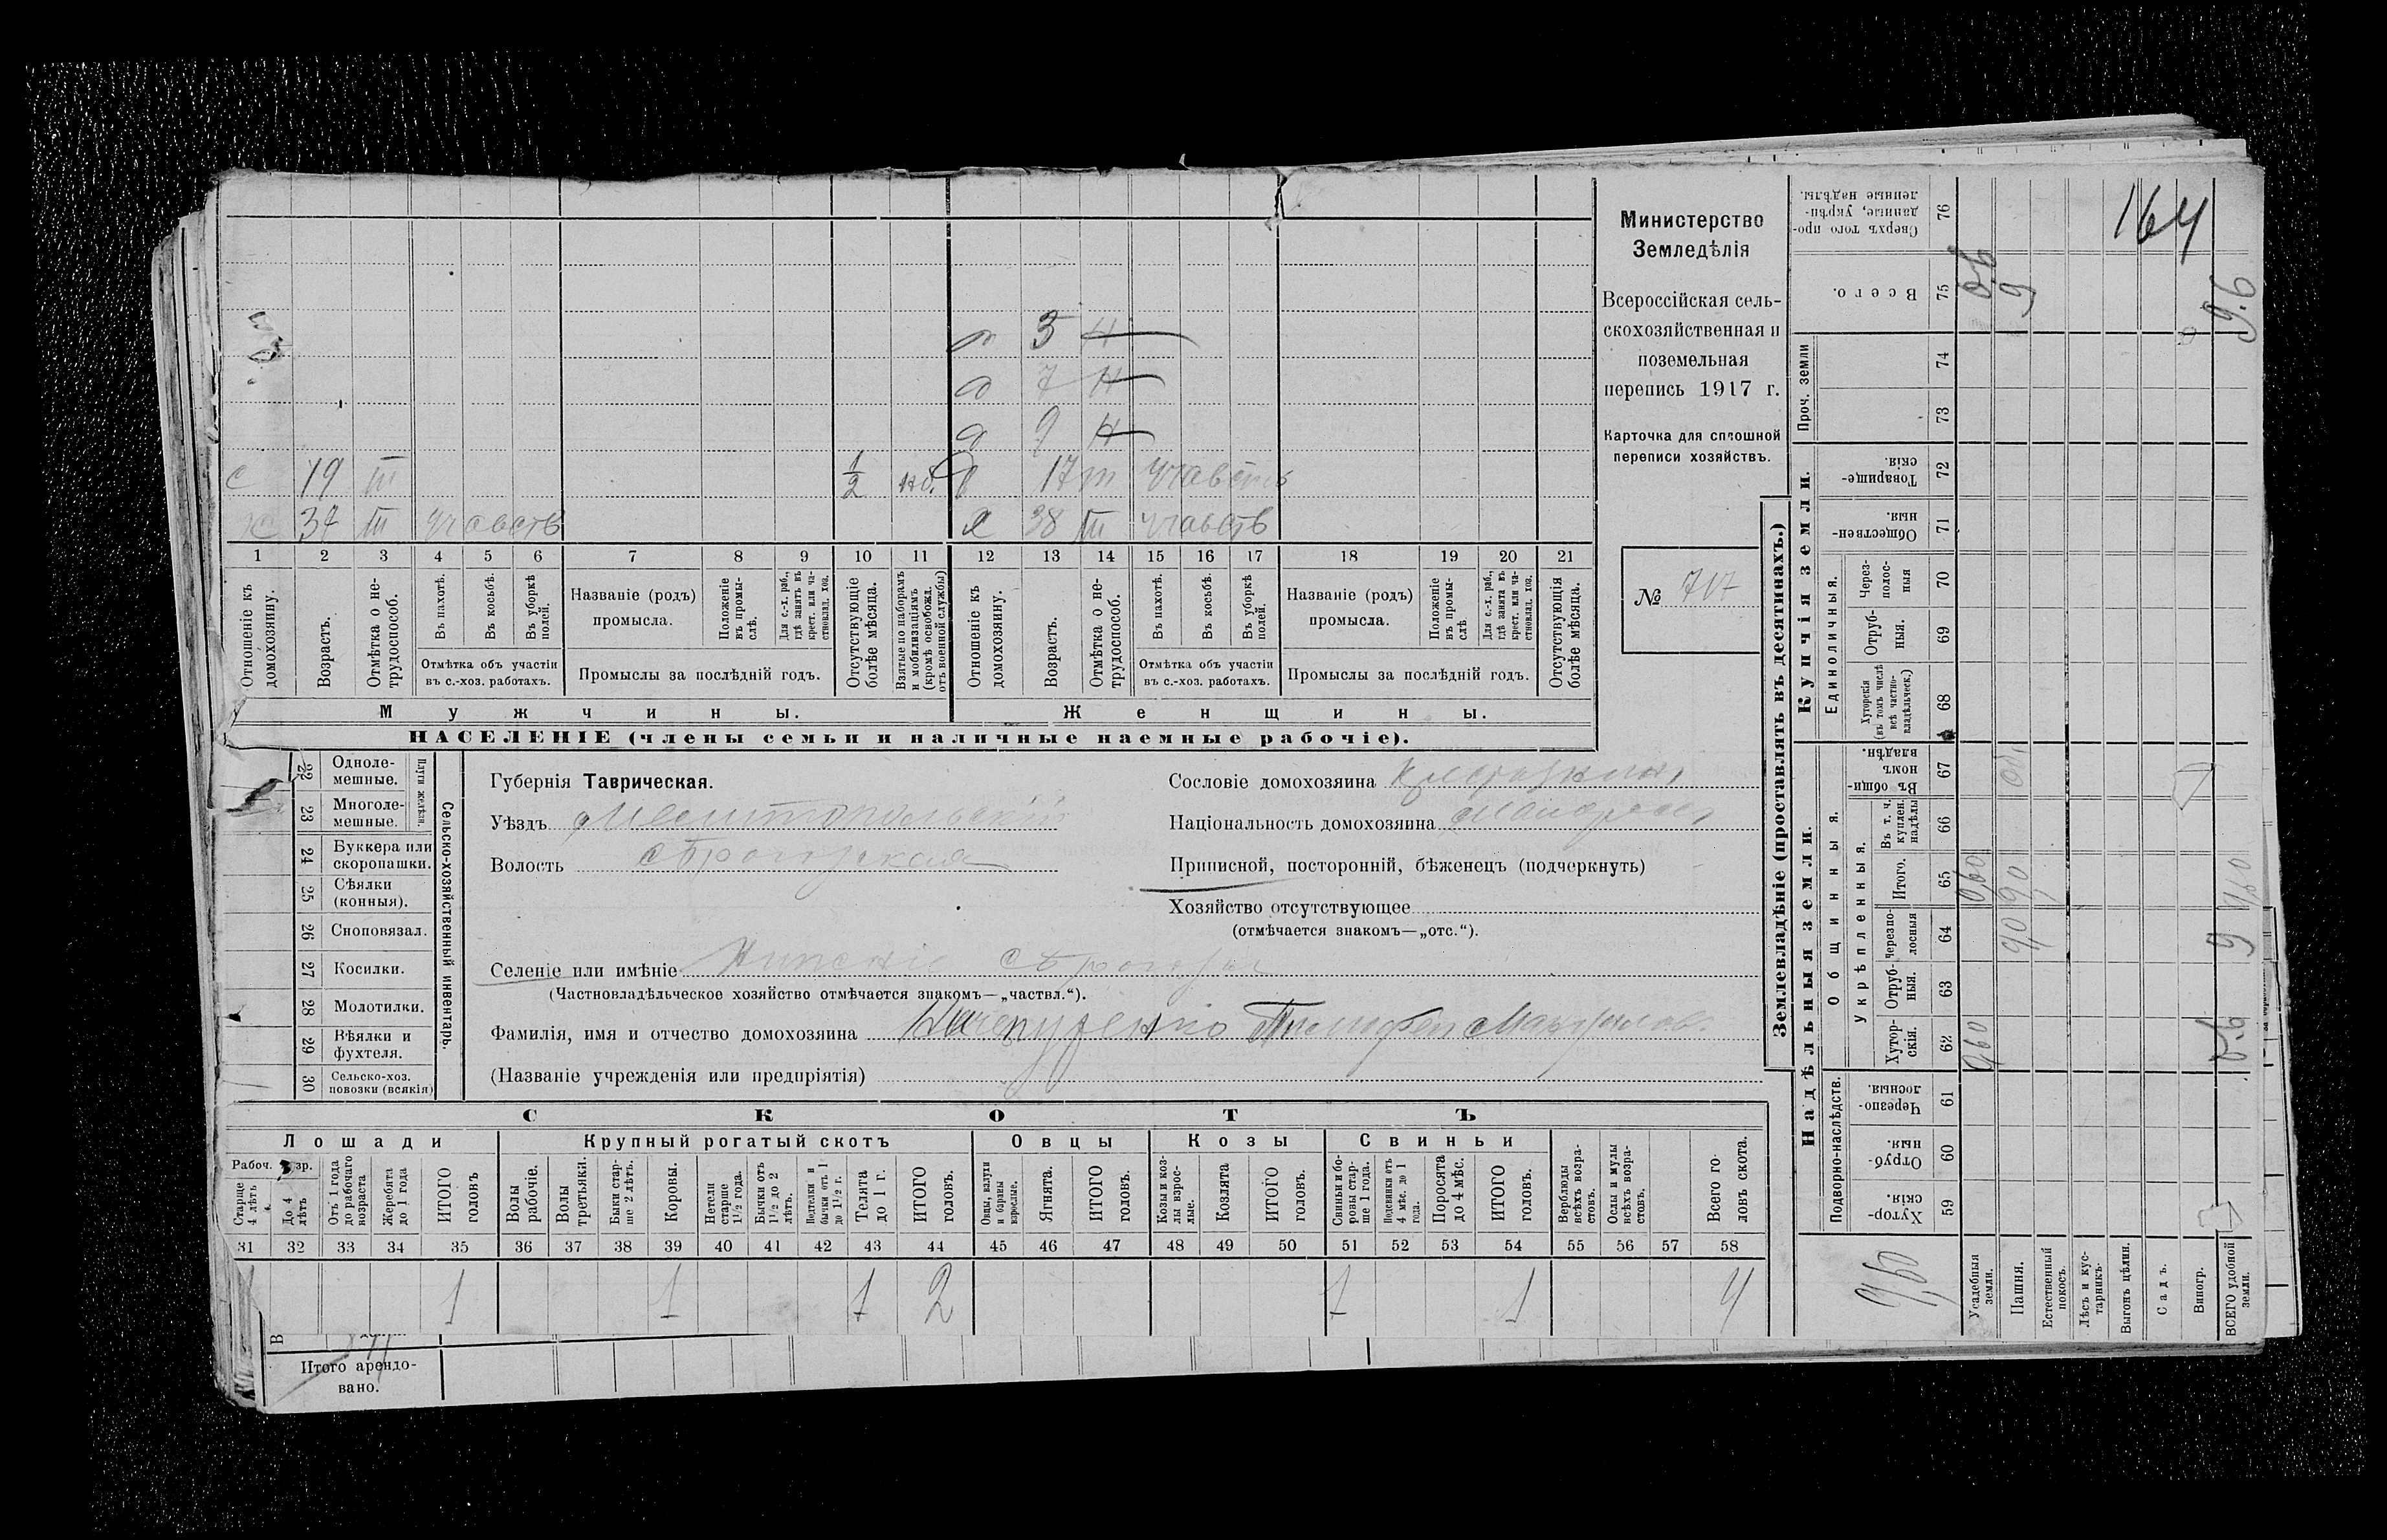 164
Министерство
Земледѣлія
Всероссійская сель-
скохозяйственная и
поземельная
перепись 1917 г.
Карточка для сплошной
переписи хозяйствъ.
№ 717
3 Н
д 7 Н
д 9 Н
с 19 III 1/2 д 17 участв
х 37 III участв 38 III участв
1 2 3 4 5 6 7 8 9 10 11 12 13 14 15 16 17 18 19 20 21
Отношеніе къ домохозяину.
Возрастъ.
Отмѣтка о не-трудоспособ.
Въ пахотѣ.
Въ косьбѣ.
Въ уборкѣ полей.
Отмѣтка объ участіи
въ с.-хоз. работахъ.
Названіе (родъ)
промысла.
Положеніе въ промы-слѣ.
Для с.-х. раб., гдѣ занятъ въ крест. или ча-стновлад. хоз.
Промыслы за послѣдній годъ.
Отсутствующіе болѣе мѣсяца.
Взятые по наборамъ и мобилизаціямъ (кромѣ освобожд. отъ военной службы)
Отношеніе къ домохозяину.
Возрастъ.
Отмѣтка о не-трудоспособ.
Въ пахотѣ.
Въ косьбѣ.
Въ уборкѣ полей.
Отмѣтка объ участіи
въ с.-хоз. работахъ.
Названіе (родъ)
промысла.
Положеніе въ промы-слѣ.
Для с.-х. раб., гдѣ занята въ крест. или ча-стновлад. хоз.
Промыслы за послѣдній годъ.
Отсутствующія болѣе мѣсяца.
Мужчины. Женщины.
НАСЕЛЕНІЕ (члены семьи и наличные наемные рабочіе).
22 Одноле-мешные.
23 Многоле-мешные.
Плуги желѣзн.
24 Буккера или скоропашки.
25 Сѣялки (конныя).
26 Сноповязал.
27 Косилки.
28 Молотилки.
29 Вѣялки и фухтеля.
30 Сельско-хоз. повозки (всякія)
Сельско-хозяйственный инвентарь.
Губернія Таврическая.
Уѣздъ Мелитопольскій
Волость Сѣрогозская
Сословіе домохозяина
Національность домохозяина
Приписной, посторонній, бѣженецъ (подчеркнуть)
Хозяйство отсутствующее
(отмѣчается знакомъ—„отс.“).
Селеніе или имѣніе Нижніе Сѣрогозы
(Частновладѣльческое хозяйство отмѣчается знакомъ—„частвл.“).
Фамилія, имя и отчество домохозяина Тимофей
(Названіе учрежденія или предпріятія)
СКОТЪ
Лошади Крупный рогатый скотъ Овцы Козы Свиньи
Рабоч. зр.
Старше 4 лѣтъ
До 4 лѣтъ
Отъ 1 года до рабочаго возраста
Жеребята до 1 года
ИТОГО головъ
Волы рабочіе.
Волы третьяки.
Быки стар-ше 2 лѣтъ.
Коровы.
Нетели старше 1½ года.
Бычки отъ 1½ до 2 лѣтъ.
Подтелки и бычки отъ 1 до 1½ г.
Телята до 1 г.
ИТОГО головъ.
Овцы, валухи и бараны взрослые.
Ягнята.
ИТОГО головъ.
Козы и коз-лы взрос-лые.
Козлята
ИТОГО головъ.
Свиньи и бо-ровы стар-ше 1 года.
Подсвинки отъ 4 мѣс. до 1 года.
Поросята до 4 мѣс.
ИТОГО головъ.
Верблюды всѣхъ возра-стовъ.
Ослы и мулы всѣхъ возра-стовъ.
Всего го-ловъ скота.
31 32 33 34 35 36 37 38 39 40 41 42 43 44 45 46 47 48 49 50 51 52 53 54 55 56 57 58
1 1 1 1 2 1 1 4
Итого арендо-
вано.
Землевладѣніе (проставлять въ десятинахъ.)
Надѣльныя земли. Купчія земли.
Подворно-наслѣдств.
Общинныя.
Укрѣпленныя.
Единоличныя.
Проч. земли
59 Хутор-скія.
60 Отруб-ныя.
61 Черезпо-лосныя.
62 Хутор-скія.
63 Отруб-ныя.
64 Черезпо-лосныя
65 Итого.
66 Въ т. ч. куплен. надѣлы
67 Въ общин-номъ владѣн.
68 Хуторскія (въ томъ числѣ всѣ частно-владѣльческ.)
69 Отруб-ныя.
70 Через-полос-ныя
71 Обществен-ныя.
72 Товарище-скія.
73
74
75 Всего.
76 Сверхъ того про-данные, укрѣп-ленные надѣлы.
Усадебныя земли.
Пашня.
Естественный покосъ.
Лѣсъ и кус-тарникъ.
Выгонъ цѣлин.
Садъ.
Виногр.
ВСЕГО удобной земли.
9,60
0,60
0,60
9,0
9,0
9
9.6
9
9,60